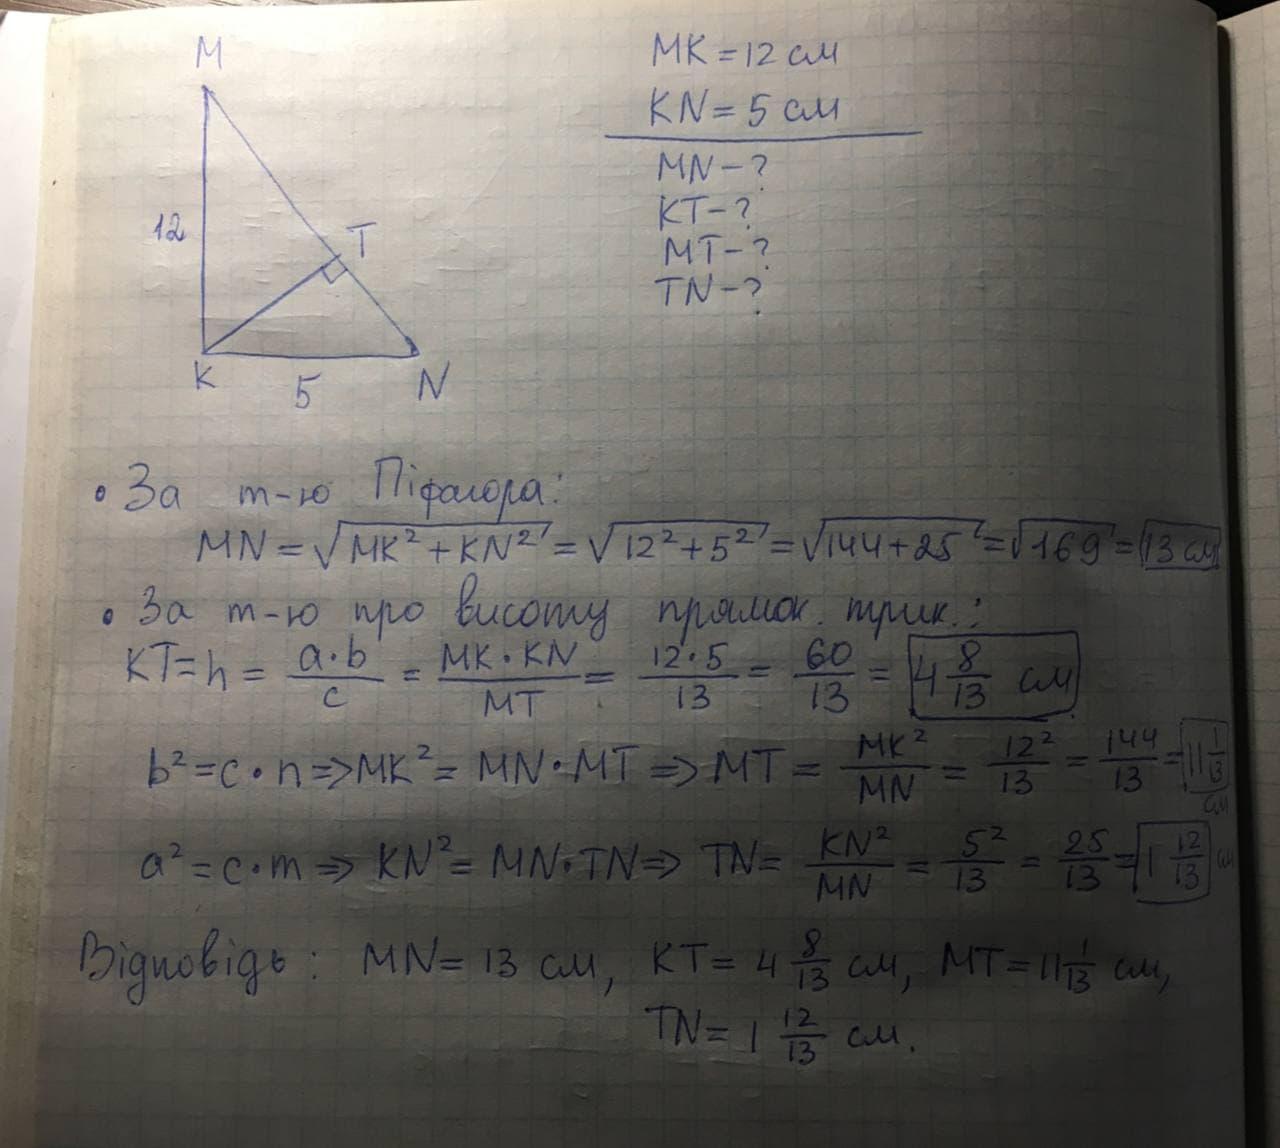 M
12
T
K
5
N
MK = 12 см
KN = 5 см
MN - ?
KT - ?
MT - ?
TN - ?
• За т-ю Піфагора:
MN = √(MK² + KN²) = √(12² + 5²) = √(144 + 25) = √169 = 13 см
• За т-ю про висоту прямок. трик.:
KT = h = a·b/c = MK·KN/MT = 12·5/13 = 60/13 = 4 8/13 см
b² = c·n => MK² = MN·MT => MT = MK²/MN = 12²/13 = 144/13 = 11 1/13 см
a² = c·m => KN² = MN·TN => TN = KN²/MN = 5²/13 = 25/13 = 1 12/13 см
Відповідь: MN = 13 см, KT = 4 8/13 см, MT = 11 1/13 см,
TN = 1 12/13 см.